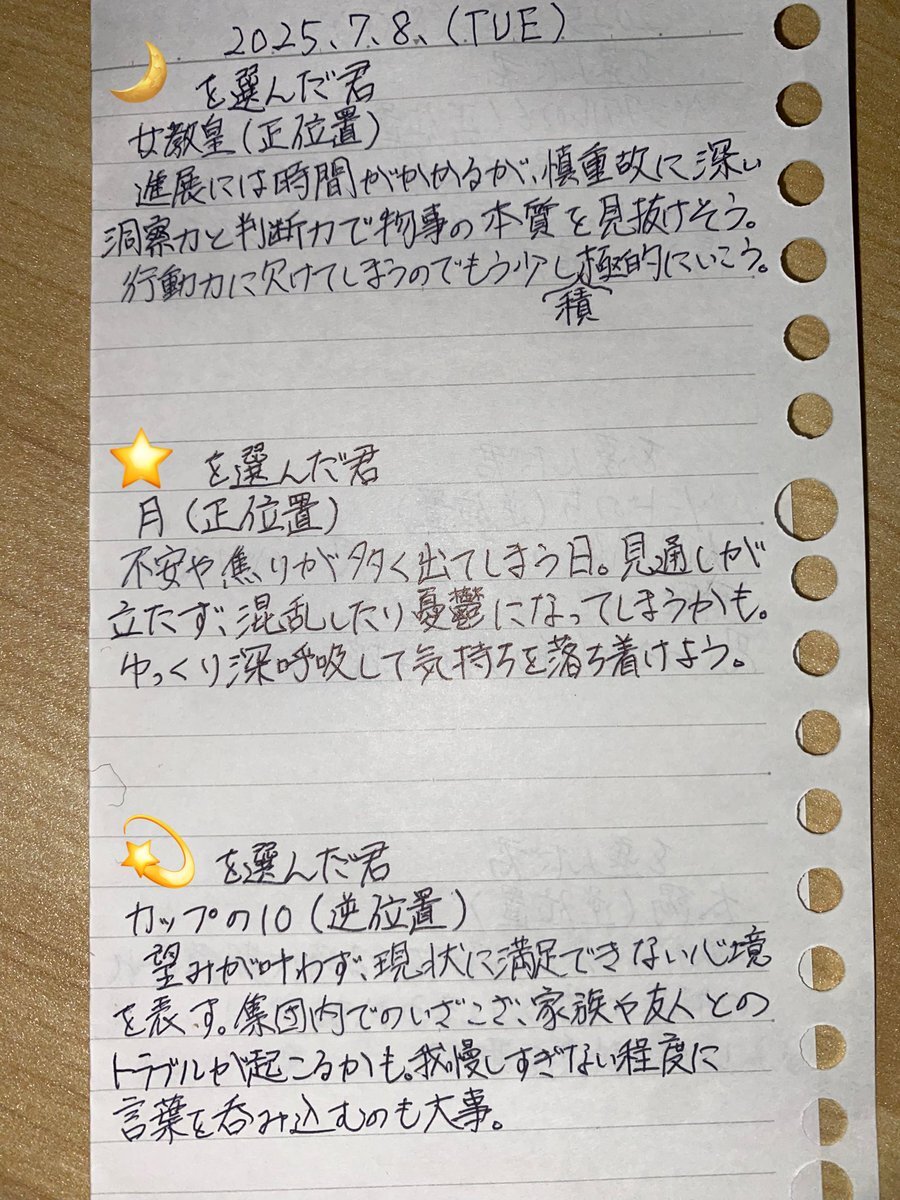 2025.7.8.(TUE)
🌙を選んだ君
女教皇(正位置)
進展には時間がかかるが、慎重故に深い
洞察力と判断力で物事の本質を見抜けそう。
行動力に欠けてしまうのでもう少し積極的にいこう。
⭐を選んだ君
月(正位置)
不安や焦りが多く出てしまう日。見通しが
立たず、混乱したり憂鬱になってしまうかも。
ゆっくり深呼吸して気持ちを落ち着けよう。
💫を選んだ君
カップの10(逆位置)
望みが叶わず、現状に満足できない心境
を表す。集団内でのいざこざ、家族や友人との
トラブルが起こるかも。我慢しすぎない程度に
言葉を呑み込むのも大事。